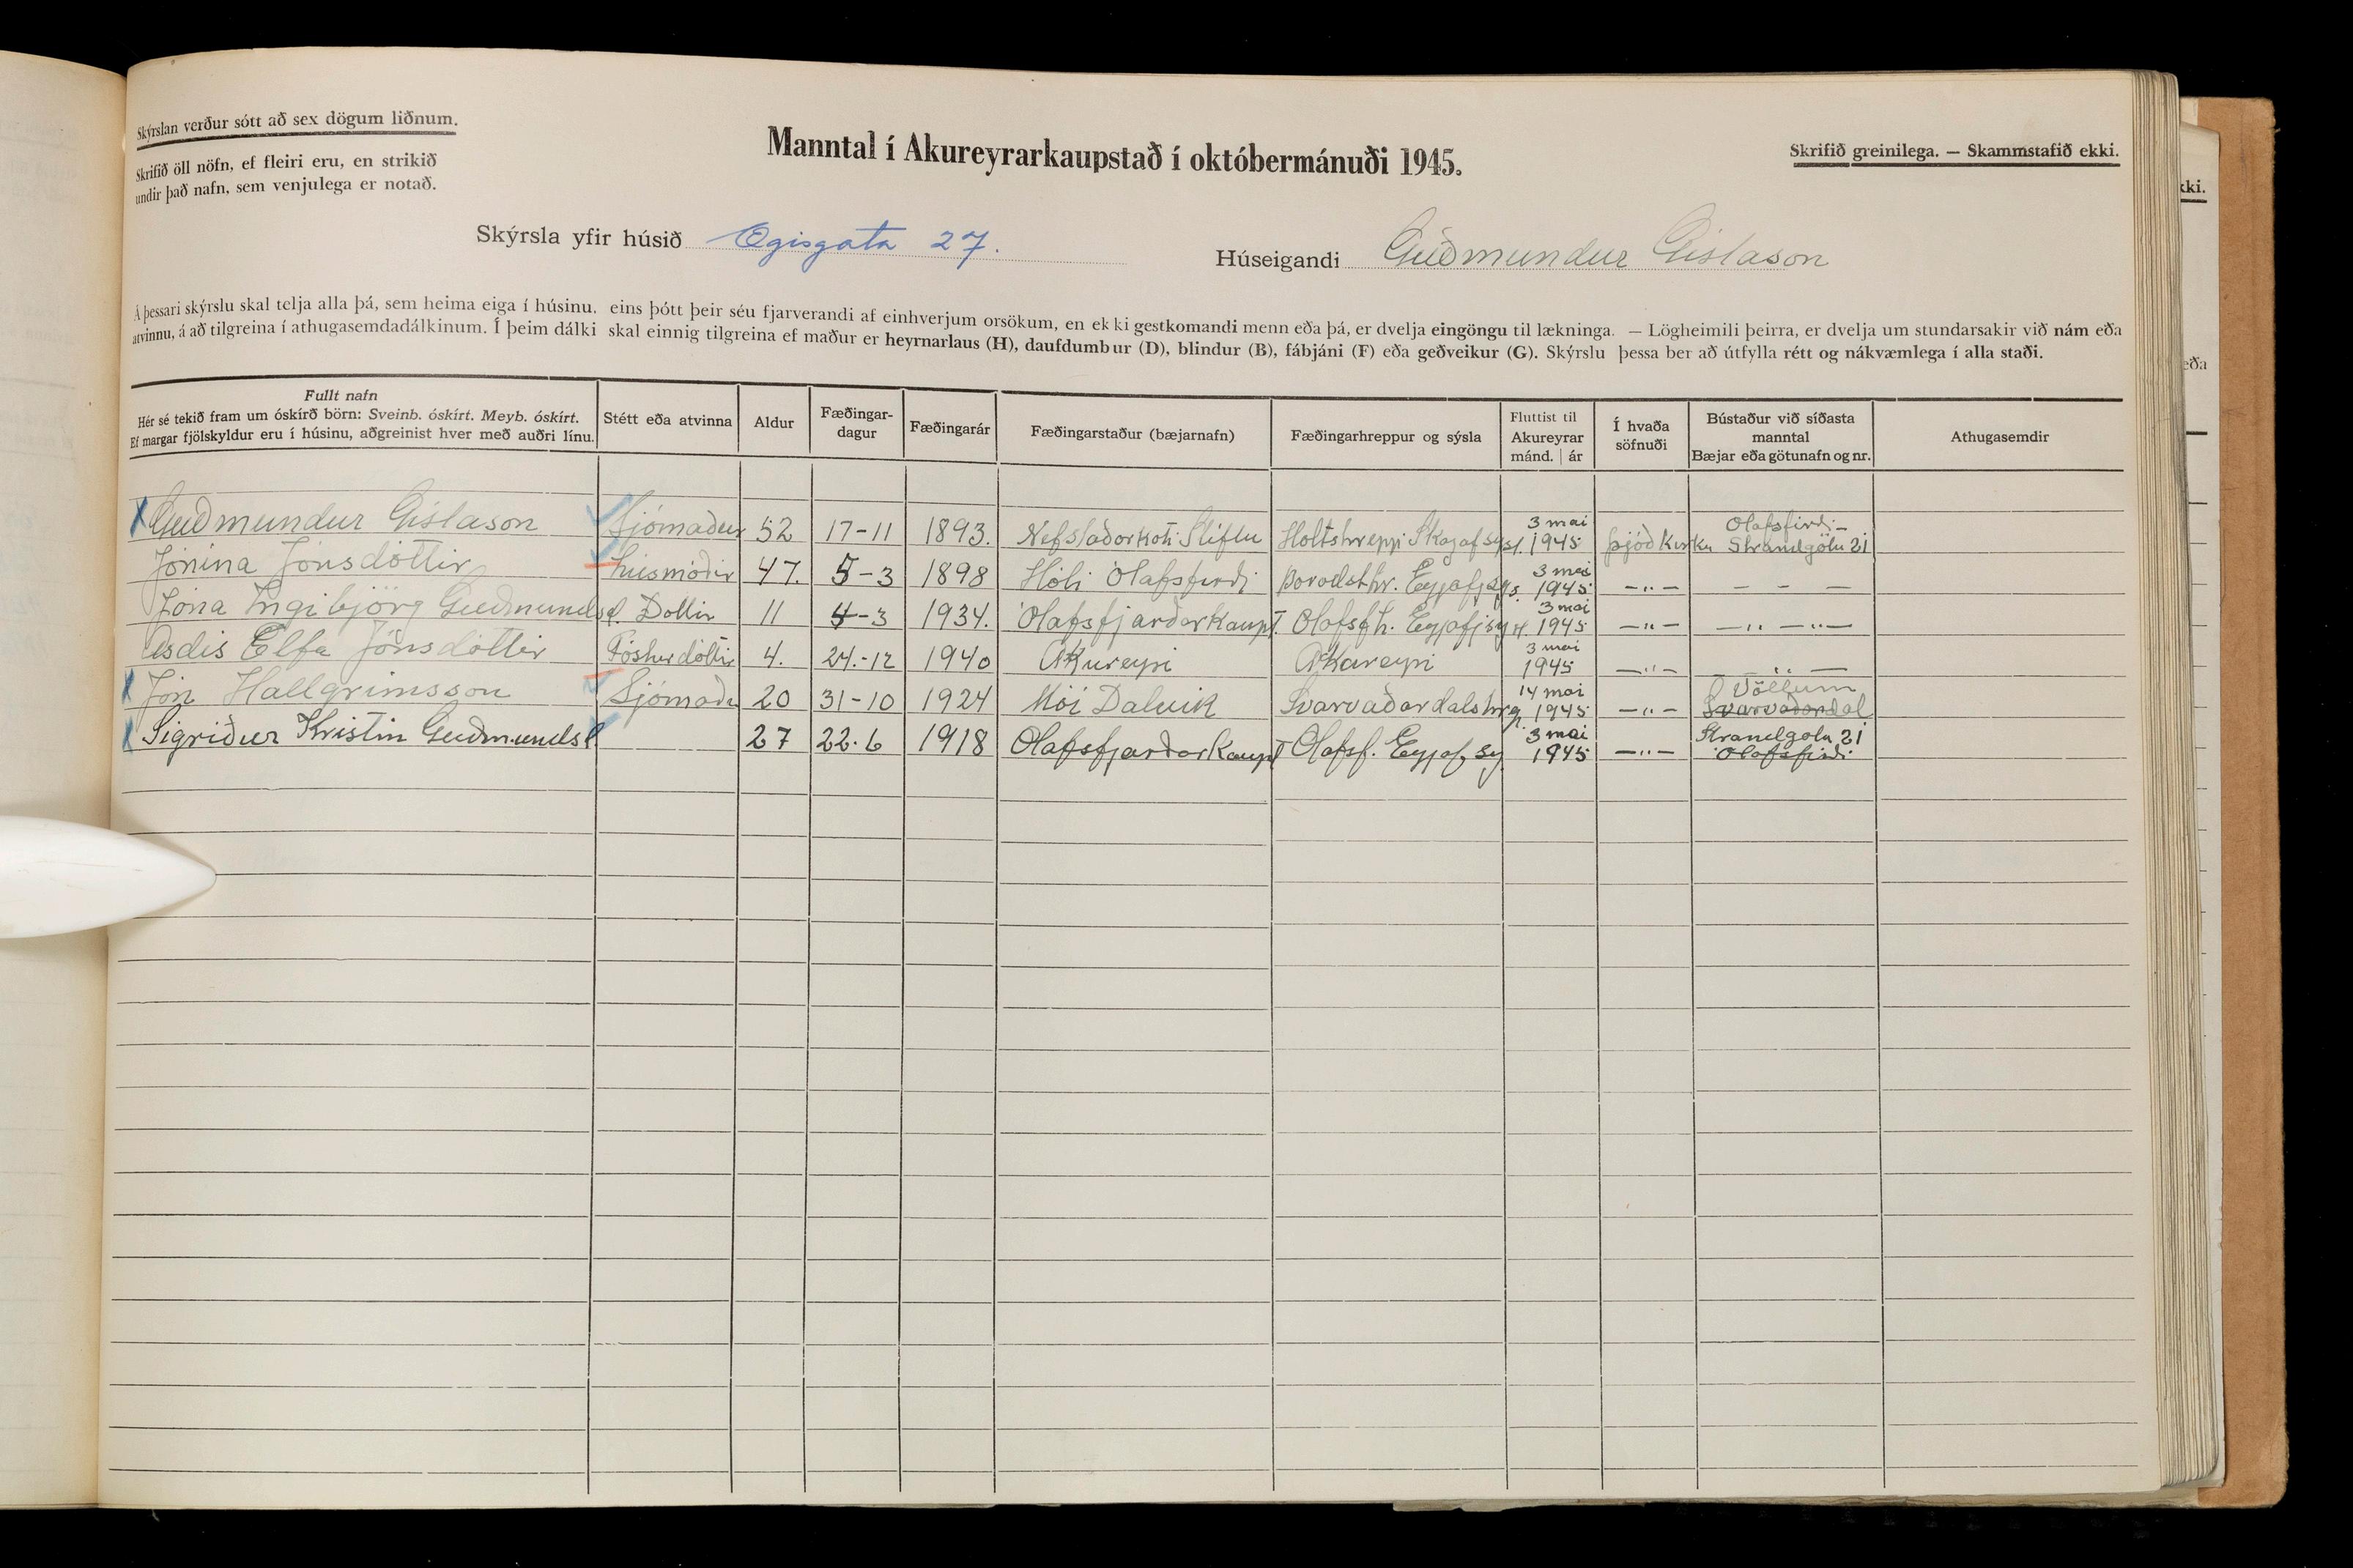 Skýrslan verður sótt að sex dögum liðnum.
Skrifið öll nöfn, ef fleiri eru, en strikið
undir það nafn, sem venjulega er notað.
Manntal í Akureyrarkaupstað í októbermánuði 1945.
Skrifið greinilega. — Skammstafið ekki.
Skýrsla yfir húsið Ægisgata 27.
Húseigandi Guðmundur Gíslason
Á þessari skýrslu skal telja alla þá, sem heima eiga í húsinu, eins þótt þeir séu fjarverandi af einhverjum orsökum, en ekki gestkomandi menn eða þá, er dvelja eingöngu til lækninga. — Lögheimili þeirra, er dvelja um stundarsakir við nám eða
atvinnu, á að tilgreina í athugasemdadálkinum. Í þeim dálki skal einnig tilgreina ef maður er heyrnarlaus (H), daufdumbur (D), blindur (B), fábjáni (F) eða geðveikur (G). Skýrslu þessa ber að útfylla rétt og nákvæmlega í alla staði.
Fullt nafn
Hér sé tekið fram um óskírð börn: Sveinb. óskírt. Meyb. óskírt.
Ef margar fjölskyldur eru í húsinu, aðgreinist hver með auðri línu.
Stétt eða atvinna
Aldur
Fæðingar-
dagur
Fæðingarár
Fæðingarstaður (bæjarnafn)
Fæðingarhreppur og sýsla
Fluttist til
Akureyrar
mánd. | ár
Í hvaða
söfnuði
Bústaður við síðasta
manntal
Bæjar eða götunafn og nr.
Athugasemdir
Guðmundur Gíslason Sjómaður 52 17-11 1893. Nefstaðorkoti Stíflu Holtshreppi Skagafsýsl. 3 mai 1945 Þjóðkirku Olafsfirði- Strandgötu 21
Jónína Jónsdóttir húsmóðir 47. 5-3 1898 Hóli Olafsfirði Þorodsthr. Eyjafjsýs. 3 mai 1945 —"— — — —
Jóna Ingibjörg Guðmundsd. Dottir 11 4-3 1934. Olafsfjarðarkaupt. Olafsfh. Eyjafjsýsl. 3 mai 1945 —"— —"— —"—
Asdis Elfa Jónsdóttir Fósturdóttir 4. 24.-12 1940 Akureyri Akureyri 3 mai 1945 —"— — " —
Jón Hallgrímsson Sjómaðu 20 31-10 1924 Mói Dalvik Svarvaðardalshrp. 14 mai 1945 —"— Völlum Svarvaðardal
Sigríður Kristin Guðmundsd 27 22.6 1918 Olafsfjarðarkaupt Olafsf. Eyjaf.sý 3 mai 1945 —"— Strandgötu 21 Olafsfirði
kki.
eða